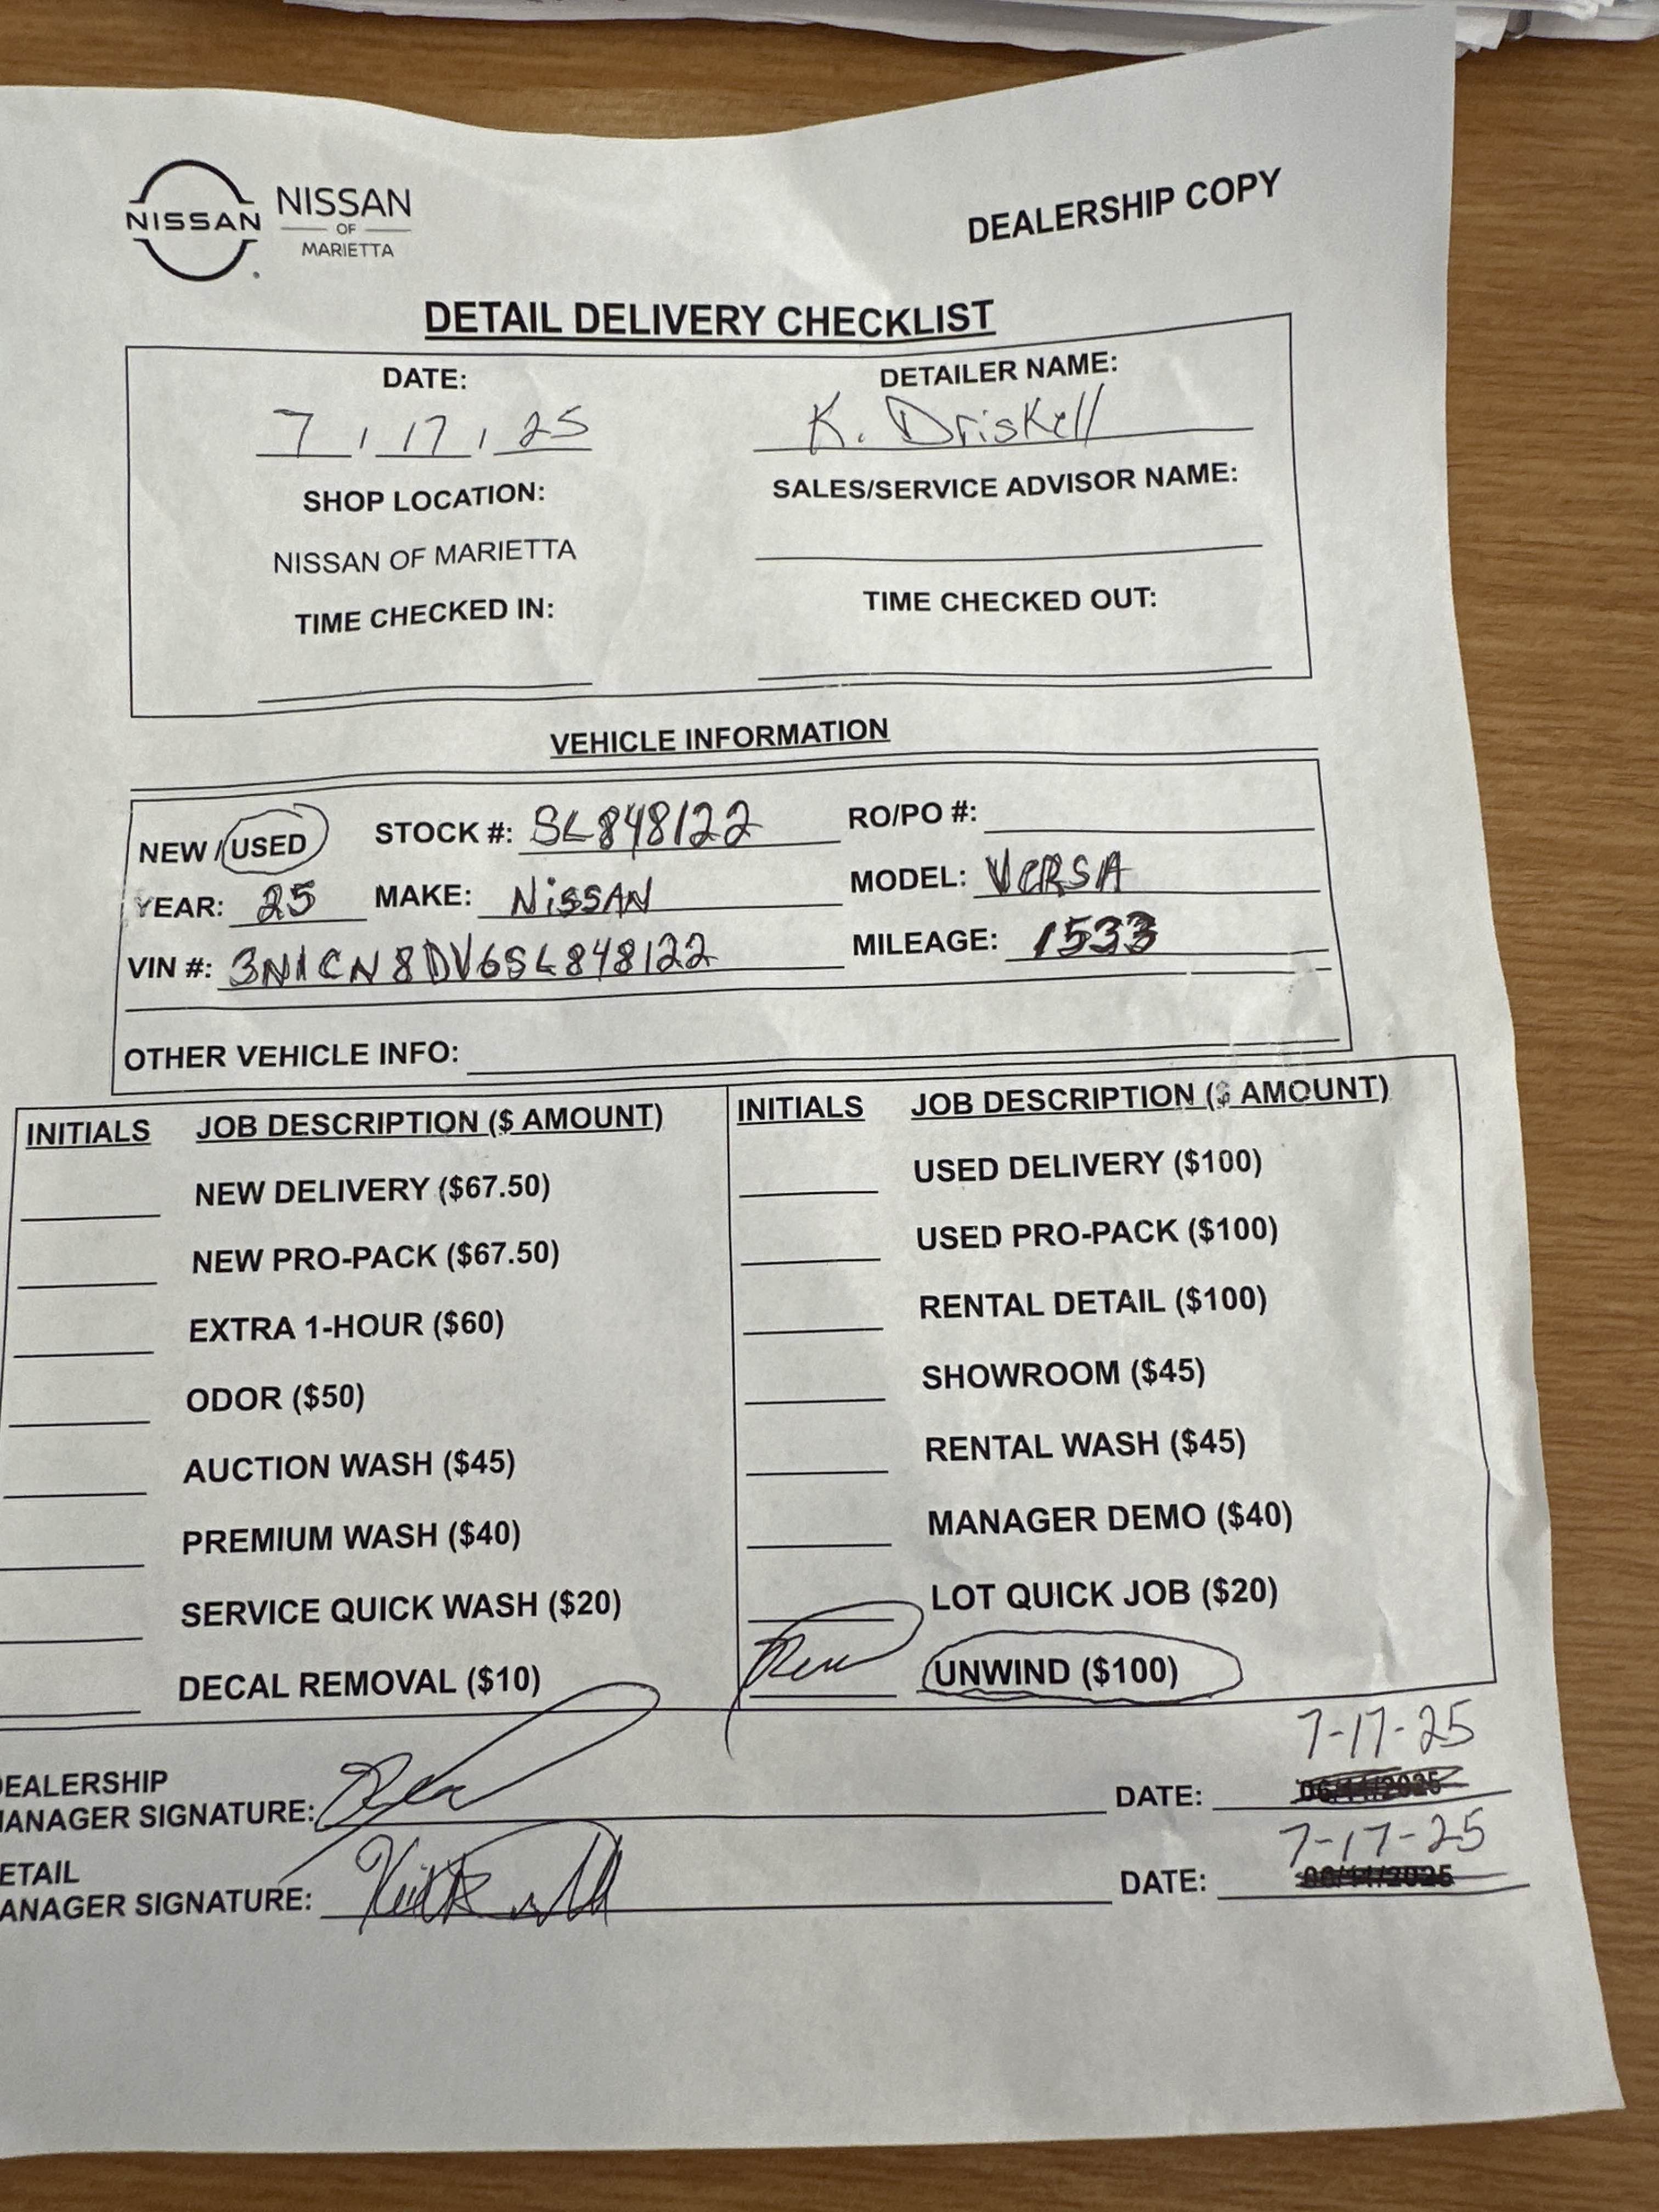 NISSAN
NISSAN
OF
MARIETTA
DEALERSHIP COPY
DETAIL DELIVERY CHECKLIST
DATE: DETAILER NAME:
7 / 17 / 25 K. Driskell
SHOP LOCATION: SALES/SERVICE ADVISOR NAME:
NISSAN OF MARIETTA
TIME CHECKED IN: TIME CHECKED OUT:
VEHICLE INFORMATION
NEW / USED STOCK #: SL848122 RO/PO #:
YEAR: 25 MAKE: NiSSAN MODEL: VERSA
VIN #: 3N1CN8DV6SL848122 MILEAGE: 1533
OTHER VEHICLE INFO:
INITIALS JOB DESCRIPTION ($ AMOUNT) INITIALS JOB DESCRIPTION ($ AMOUNT)
NEW DELIVERY ($67.50) USED DELIVERY ($100)
NEW PRO-PACK ($67.50) USED PRO-PACK ($100)
EXTRA 1-HOUR ($60) RENTAL DETAIL ($100)
ODOR ($50) SHOWROOM ($45)
AUCTION WASH ($45) RENTAL WASH ($45)
PREMIUM WASH ($40) MANAGER DEMO ($40)
SERVICE QUICK WASH ($20) LOT QUICK JOB ($20)
DECAL REMOVAL ($10) UNWIND ($100)
7-17-25
EALERSHIP
ANAGER SIGNATURE: DATE:
7-17-25
ETAIL
ANAGER SIGNATURE: DATE: